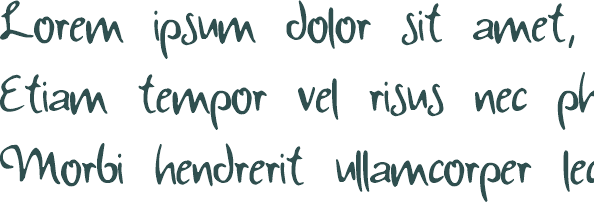 Lorem ipsum dolor sit amet,
Etiam tempor vel risus nec ph
Morbi hendrerit ullamcorper leo